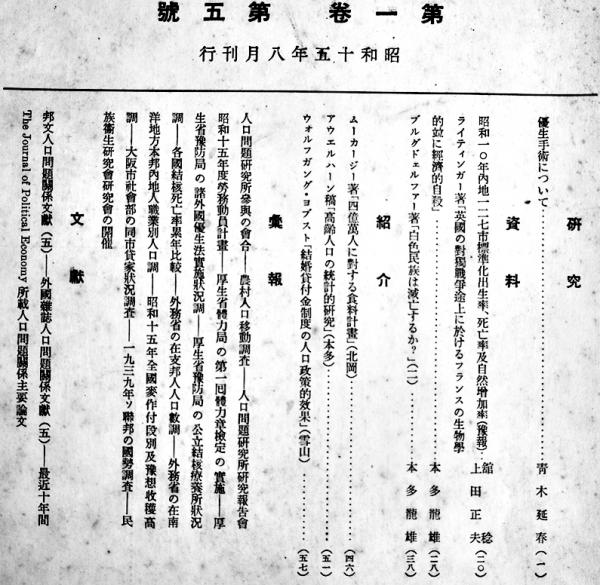 第一卷 第五號
昭和十五年八月刊行
研究
優生手術について……………………靑木延春(一)
資料
昭和一〇年內地一二七市標準化出生率、死亡率及自然增加率(豫報)……舘稔 上田正夫(二〇)
ライティンガー著「英國の對獨戰爭途上に於けるフランスの生物學
的竝に經濟的自殺」……………………本多龍雄(二八)
ブルグドェルファー著「白色民族は滅亡するか?」(二)……………………本多龍雄(三八)
紹介
ムーカージー著「四億萬人に對する食料計畫」(北岡)……………………(四六)
アウエルハーン稿「高齡人口の統計的硏究」(本多)……………………(五一)
ウォルフガング・ヨプスト「結婚貸付金制度の人口政策的效果」(雪山)……………………(五七)
彙報
人口問題硏究所參與の會合――農村人口移動調査――人口問題硏究所硏究報告會
昭和十五年度勞務動員計畫――厚生省體力局の第一囘體力章檢定の實施――厚
生省豫防局の諸外國優生法實施狀況調――厚生省豫防局の公立結核療養所狀況
調――各國結核死亡率累年比較――外務省の在支邦人人口數調――外務省の在南
洋地方本邦內地人職業別人口調――昭和十五年全國麥作付段別及豫想收穫高
調――大阪市社會部の同市貸家狀況調査――一九三九年ソ聯邦の國勢調査――民
族衞生硏究會硏究會の開催
文獻
邦文人口問題關係文獻(五)――外國雜誌人口問題關係文獻(五)――最近十年間
The Journal of Political Economy 所載人口問題關係主要論文